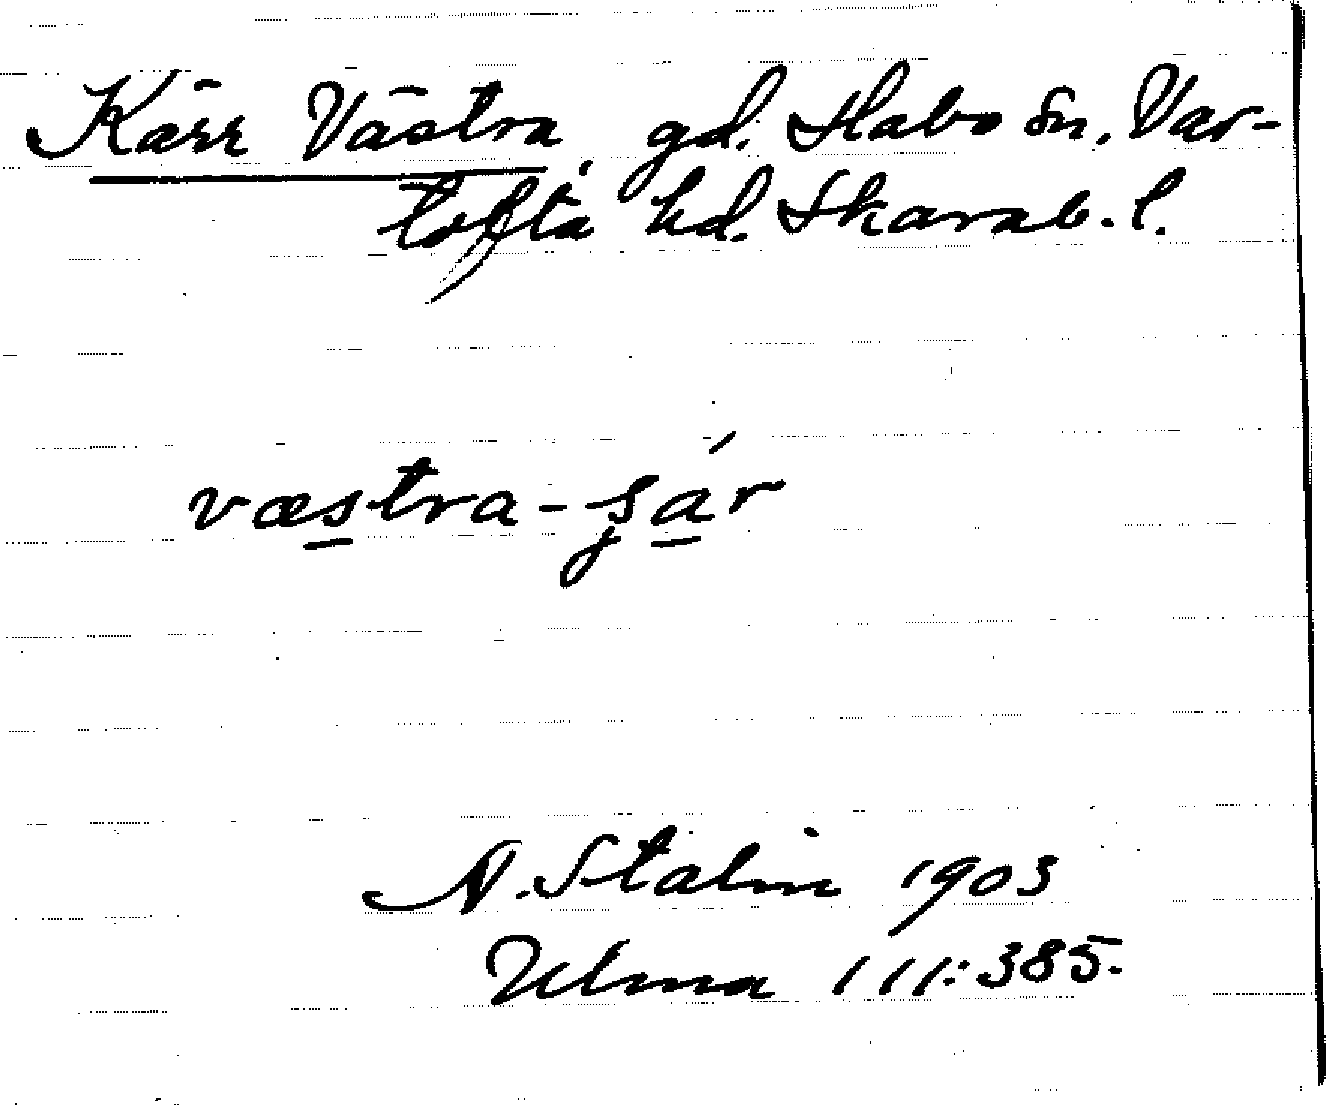 Kärr Västra, gd. Habo sn. Var-
tofta hd. Skarab. l.
væstra-şár
N. Stalin 1903
Ulma 111:385.